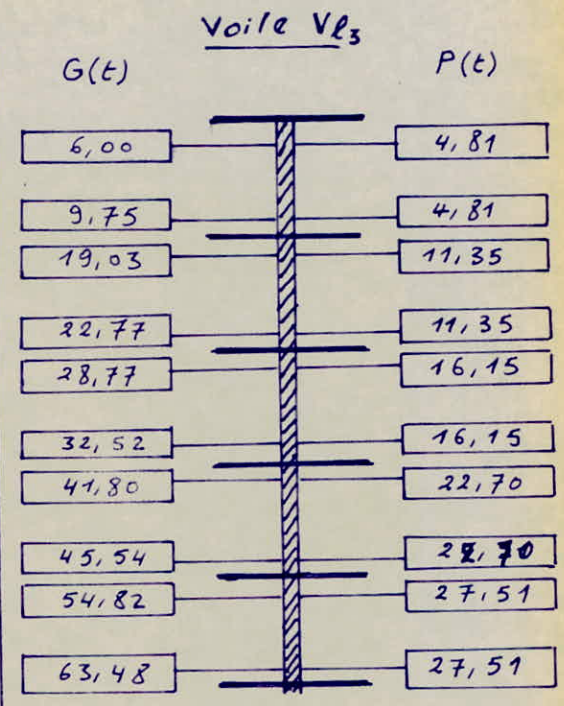 Voile Vl3
G(t) P(t)
6,00 4,81
9,75 4,81
19,03 11,35
22,77 11,35
28,77 16,15
32,52 16,15
41,80 22,70
45,54 22,70
54,82 27,51
63,48 27,51